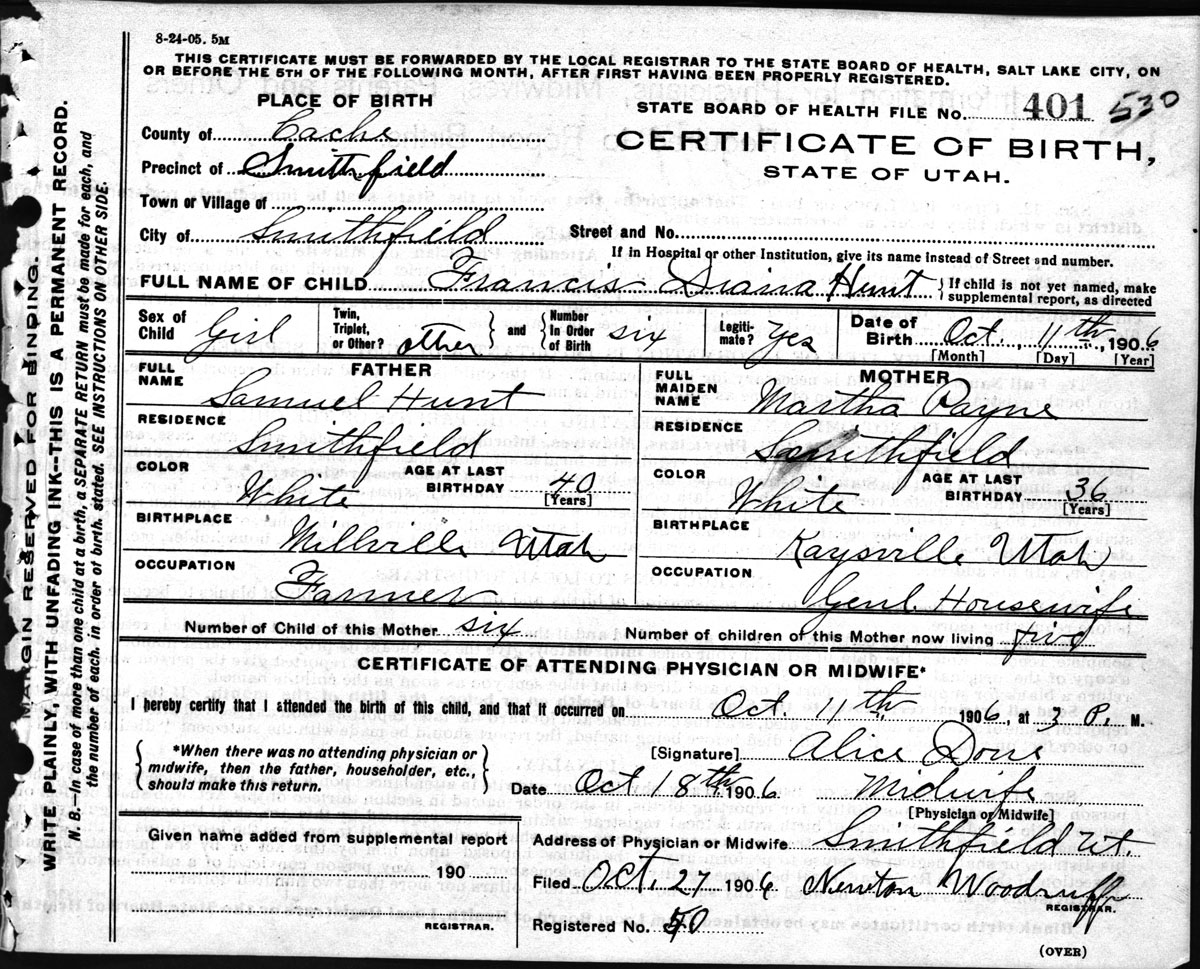 8-24-05. 5M
THIS CERTIFICATE MUST BE FORWARDED BY THE LOCAL REGISTRAR TO THE STATE BOARD OF HEALTH, SALT LAKE CITY, ON
OR BEFORE THE 5TH OF THE FOLLOWING MONTH, AFTER FIRST HAVING BEEN PROPERLY REGISTERED.
MARGIN RESERVED FOR BINDING.
WRITE PLAINLY, WITH UNFADING INK--THIS IS A PERMANENT RECORD.
N. B.—In case of more than one child at a birth, a SEPARATE RETURN must be made for each, and
the number of each, in order of birth, stated. SEE INSTRUCTIONS ON OTHER SIDE.
PLACE OF BIRTH
County of Cache
Precinct of Smithfield
Town or Village of
City of Smithfield
STATE BOARD OF HEALTH FILE No. 401 530
CERTIFICATE OF BIRTH,
STATE OF UTAH.
Street and No.
If in Hospital or other Institution, give its name instead of Street and number.
FULL NAME OF CHILD Francis Diana Hunt { If child is not yet named, make
supplemental report, as directed
Sex of Child Girl Twin, Triplet, or Other? other } and { Number In Order of Birth six Legiti-mate? Yes Date of Birth Oct. 11th, 1906
[Month] [Day] [Year]
FATHER
FULL NAME Samuel Hunt
RESIDENCE Smithfield
COLOR White AGE AT LAST BIRTHDAY 40 [Years]
BIRTHPLACE Millville Utah
OCCUPATION Farmer
MOTHER
FULL MAIDEN NAME Martha Payne
RESIDENCE Smithfield
COLOR White AGE AT LAST BIRTHDAY 36 [Years]
BIRTHPLACE Kaysville Utah
OCCUPATION Genl. Housewife
Number of Child of this Mother six Number of children of this Mother now living five
CERTIFICATE OF ATTENDING PHYSICIAN OR MIDWIFE*
I hereby certify that I attended the birth of this child, and that it occurred on Oct. 11th 1906, at 3 P. M.
{ *When there was no attending physician or
midwife, then the father, householder, etc.,
should make this return. }
[Signature] Alice
Date Oct 18th 1906. Midwife
[Physician or Midwife]
Address of Physician or Midwife Smithfield Ut.
Given name added from supplemental report
190
REGISTRAR.
Filed Oct. 27 1906 Newton Woodruff
REGISTRAR.
Registered No. 50
(OVER)